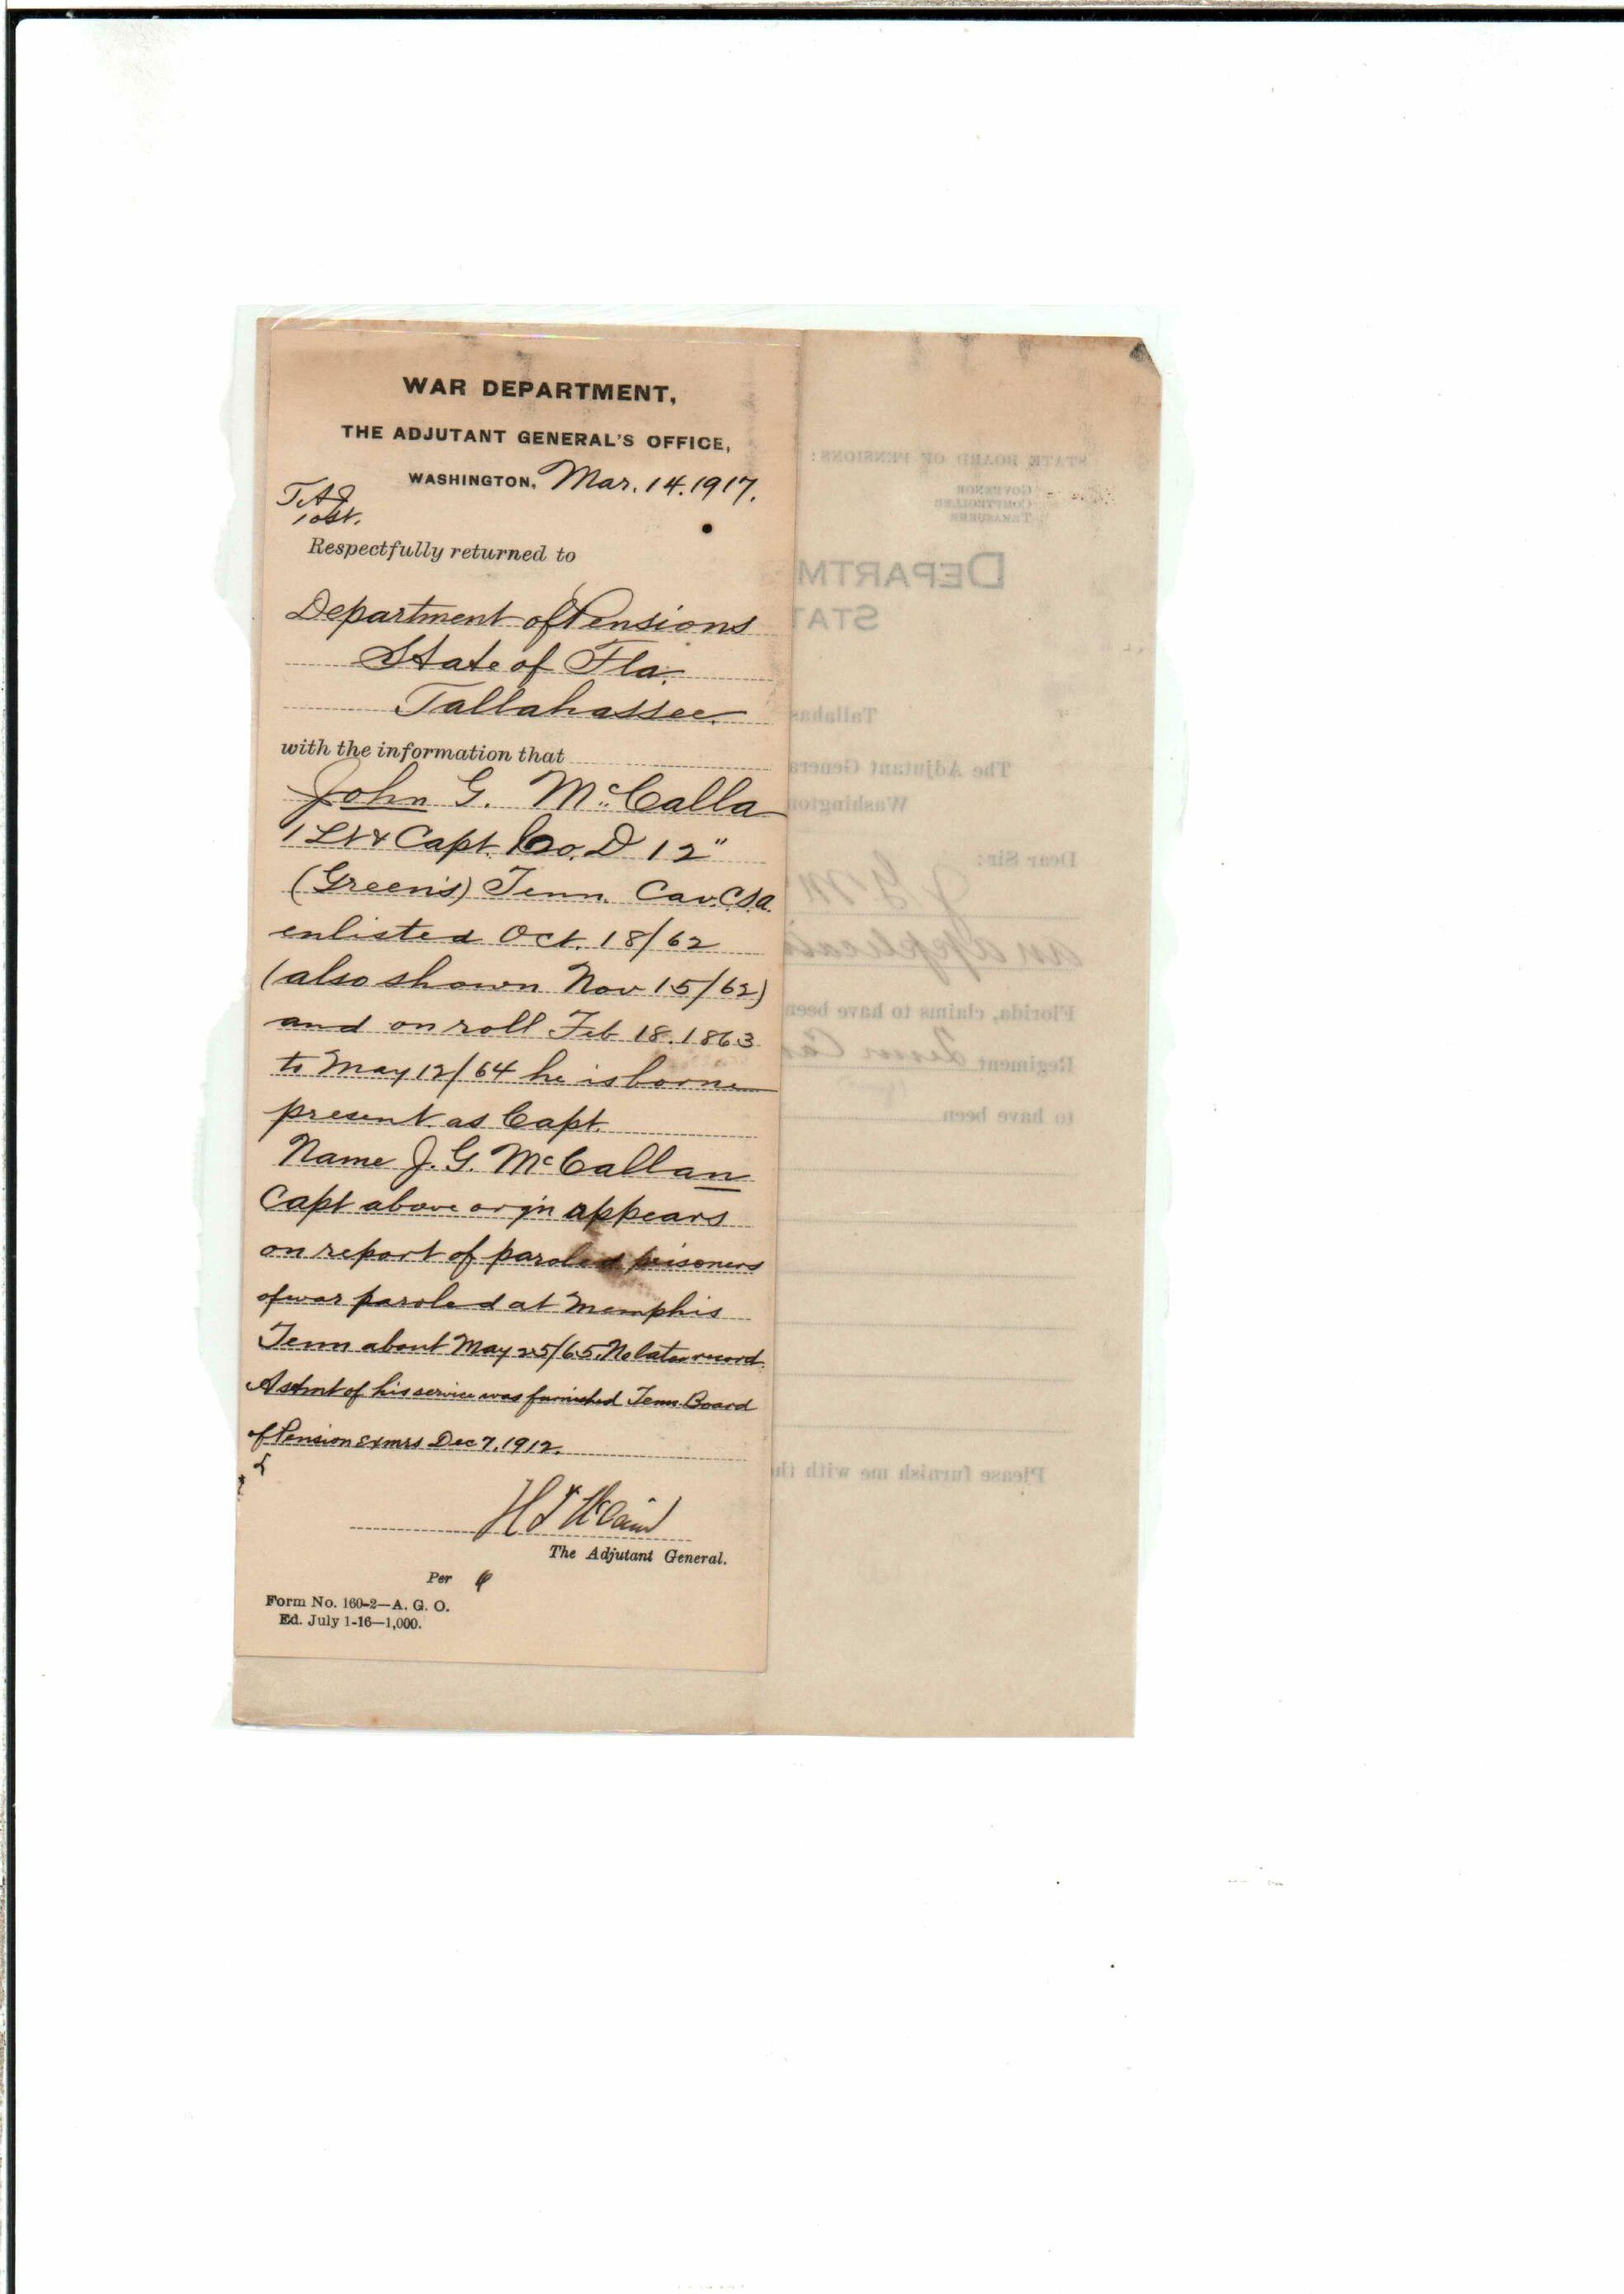 WAR DEPARTMENT,
THE ADJUTANT GENERAL'S OFFICE,
WASHINGTON, Mar. 14. 1917.
Respectfully returned to
Department of Pensions
State of Fla.
Tallahassee.
with the information that
John G. McCalla
1 Lt & Capt. Co. D 12"
(Green's) Tenn. Cav. C.S.A.
enlisted Oct. 18/62
(also shown Nov 15/62)
and on roll Feb 18. 1863
to May 12/64 he is borne
present as Capt.
Name J. G. McCallan
Capt above orgn appears
on report of paroled prisoners
of war paroled at Memphis
Tenn about May 25/65. No later record.
A stmt of his service was furnished Tenn. Board
of Pension Exmrs Dec 7. 1912.
The Adjutant General.
Per
Form No. 160-2—A. G. O.
Ed. July 1-16—1,000.
STATE BOARD OF PENSIONS:
GOVERNOR
COMPTROLLER
TREASURER
DEPARTM
STAT
Tallahas
The Adjutant Genera
Washington
Dear Sir:
J G M
an applicat
Florida, claims to have been
Regiment Tenn Ca
to have been
Please furnish me with th